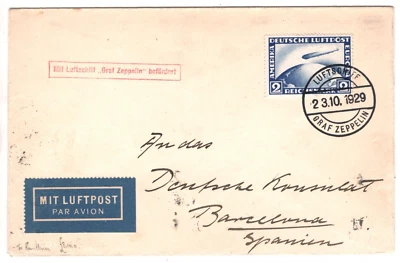 Mit Luftschiff „Graf Zeppelin“ befördert
DEUTSCHE LUFTPOST
AMERIKA
EUROPA
2 REICHSMARK 2
LUFTSCHIFF
23.10.1929
GRAF ZEPPELIN
An das
Deutsche Konsulat
Barcelona
Spanien
MIT LUFTPOST
PAR AVION